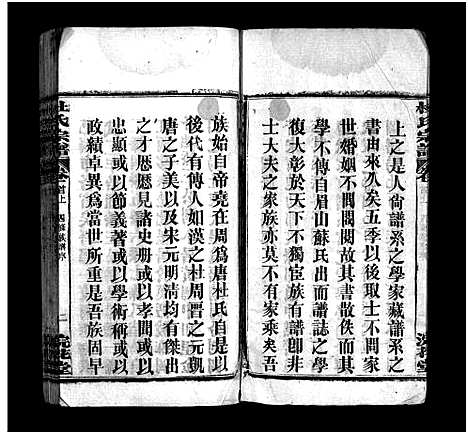 上之是人尙譜系之學家藏譜系之
書由來久矣五季以後取士不問家
世婚姻不問閥閱故其書散佚而其
學不傳追眉山蘇氏出而譜誌之學
復大彰於天下不獨宦族有譜卽非
士大夫之家族亦莫不有家乘矣吾
族始自帝堯在周爲唐杜氏自是以
後代有傳人如漢之杜周晋之元凱
唐之子美以及宋元明清均有傑出
之才歷歷見諸史册或以孝聞或以
忠顯或以節義著或以學術稱或以
政績卓異爲當世所重是吾族固早
杜氏宗譜
卷首上
四修族譜序
二
浣花堂